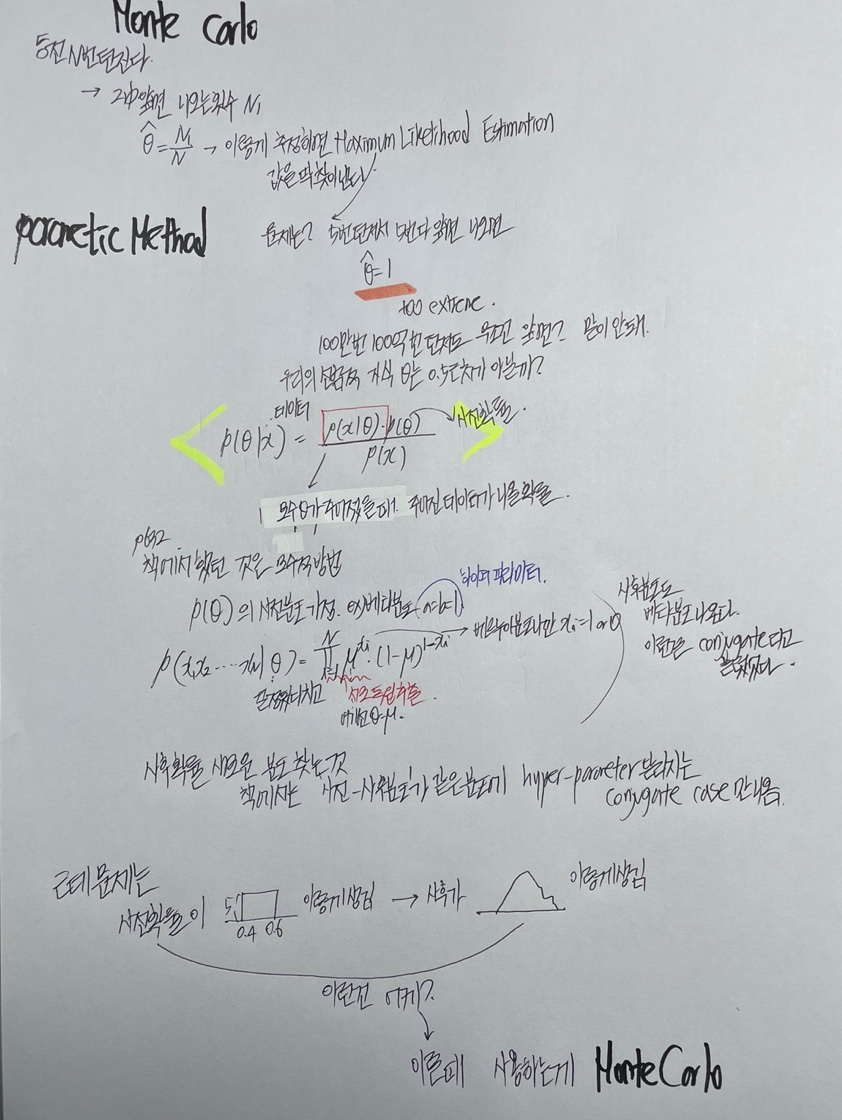 Monte Carlo
동전 N번 던진다.
→ 그中 앞면 나오는 횟수 N₁
θ̂ = N₁/N → 이렇게 추정하면 Maximum Likelihood Estimation
값을 딱 찾아낸다
parametic Method
문제는? 5번 던져서 5번 다 앞면 나오면
θ̂ = 1
too extreme.
100만번 100억번 던져도 무조건 앞면? 말이 안돼.
우리의 선험적 지식 θ는 0.5근처가 아닐까?
데이터
p(θ|x) = p(x|θ)·p(θ) / p(x)
사전확률.
모수 θ가 주어졌을 때. 주어진 데이터가 나올 확률.
p632
책에서 했던 것은 모수적 방법
하이퍼 파라미터.
p(θ)의 사전분포 가정. ex) 베타분포 (a=b=1)
p(x₁x₂ ⋯ x_N | θ) = ∏ μ^xi · (1-μ)^1-xi → 베르누이분포다만 xi = 1 or 0
N
i=1
결정됐다치고
서로 독립 추출.
여기선 θ=μ.
사후분포도
베타분포 나온다.
이런걸 conjugate라고
불렀었다.
사후확률 새로운 분포 찾는 것
책에서는 사전-사후분포가 같은분포에 hyper-parameter 달라지는
conjugate case 만 나옴.
근데 문제는
사전확률이
5
0.4 0.6
이렇게 생김 → 사후가
이렇게생김
이런건 어케?
이럴때 사용하는게 Monte Carlo